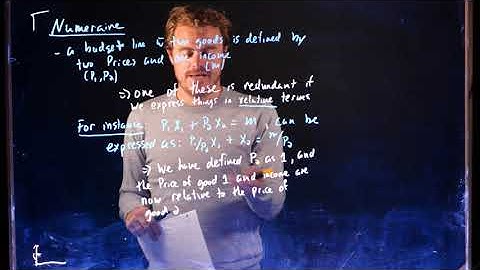 Numeraire
- a budget line w two goods is defined by
two Prices and one income
(P1, P2) (m)
⇒ one of these is redundant if
we express things in relative terms
For instance: P1X1 + P2X2 = m, can be
expressed as: P1/P2 X1 + X2 = m/P2
⇒ We have defined P2 as 1, and
the Price of good 1 and income are
now relative to the price of
good 2